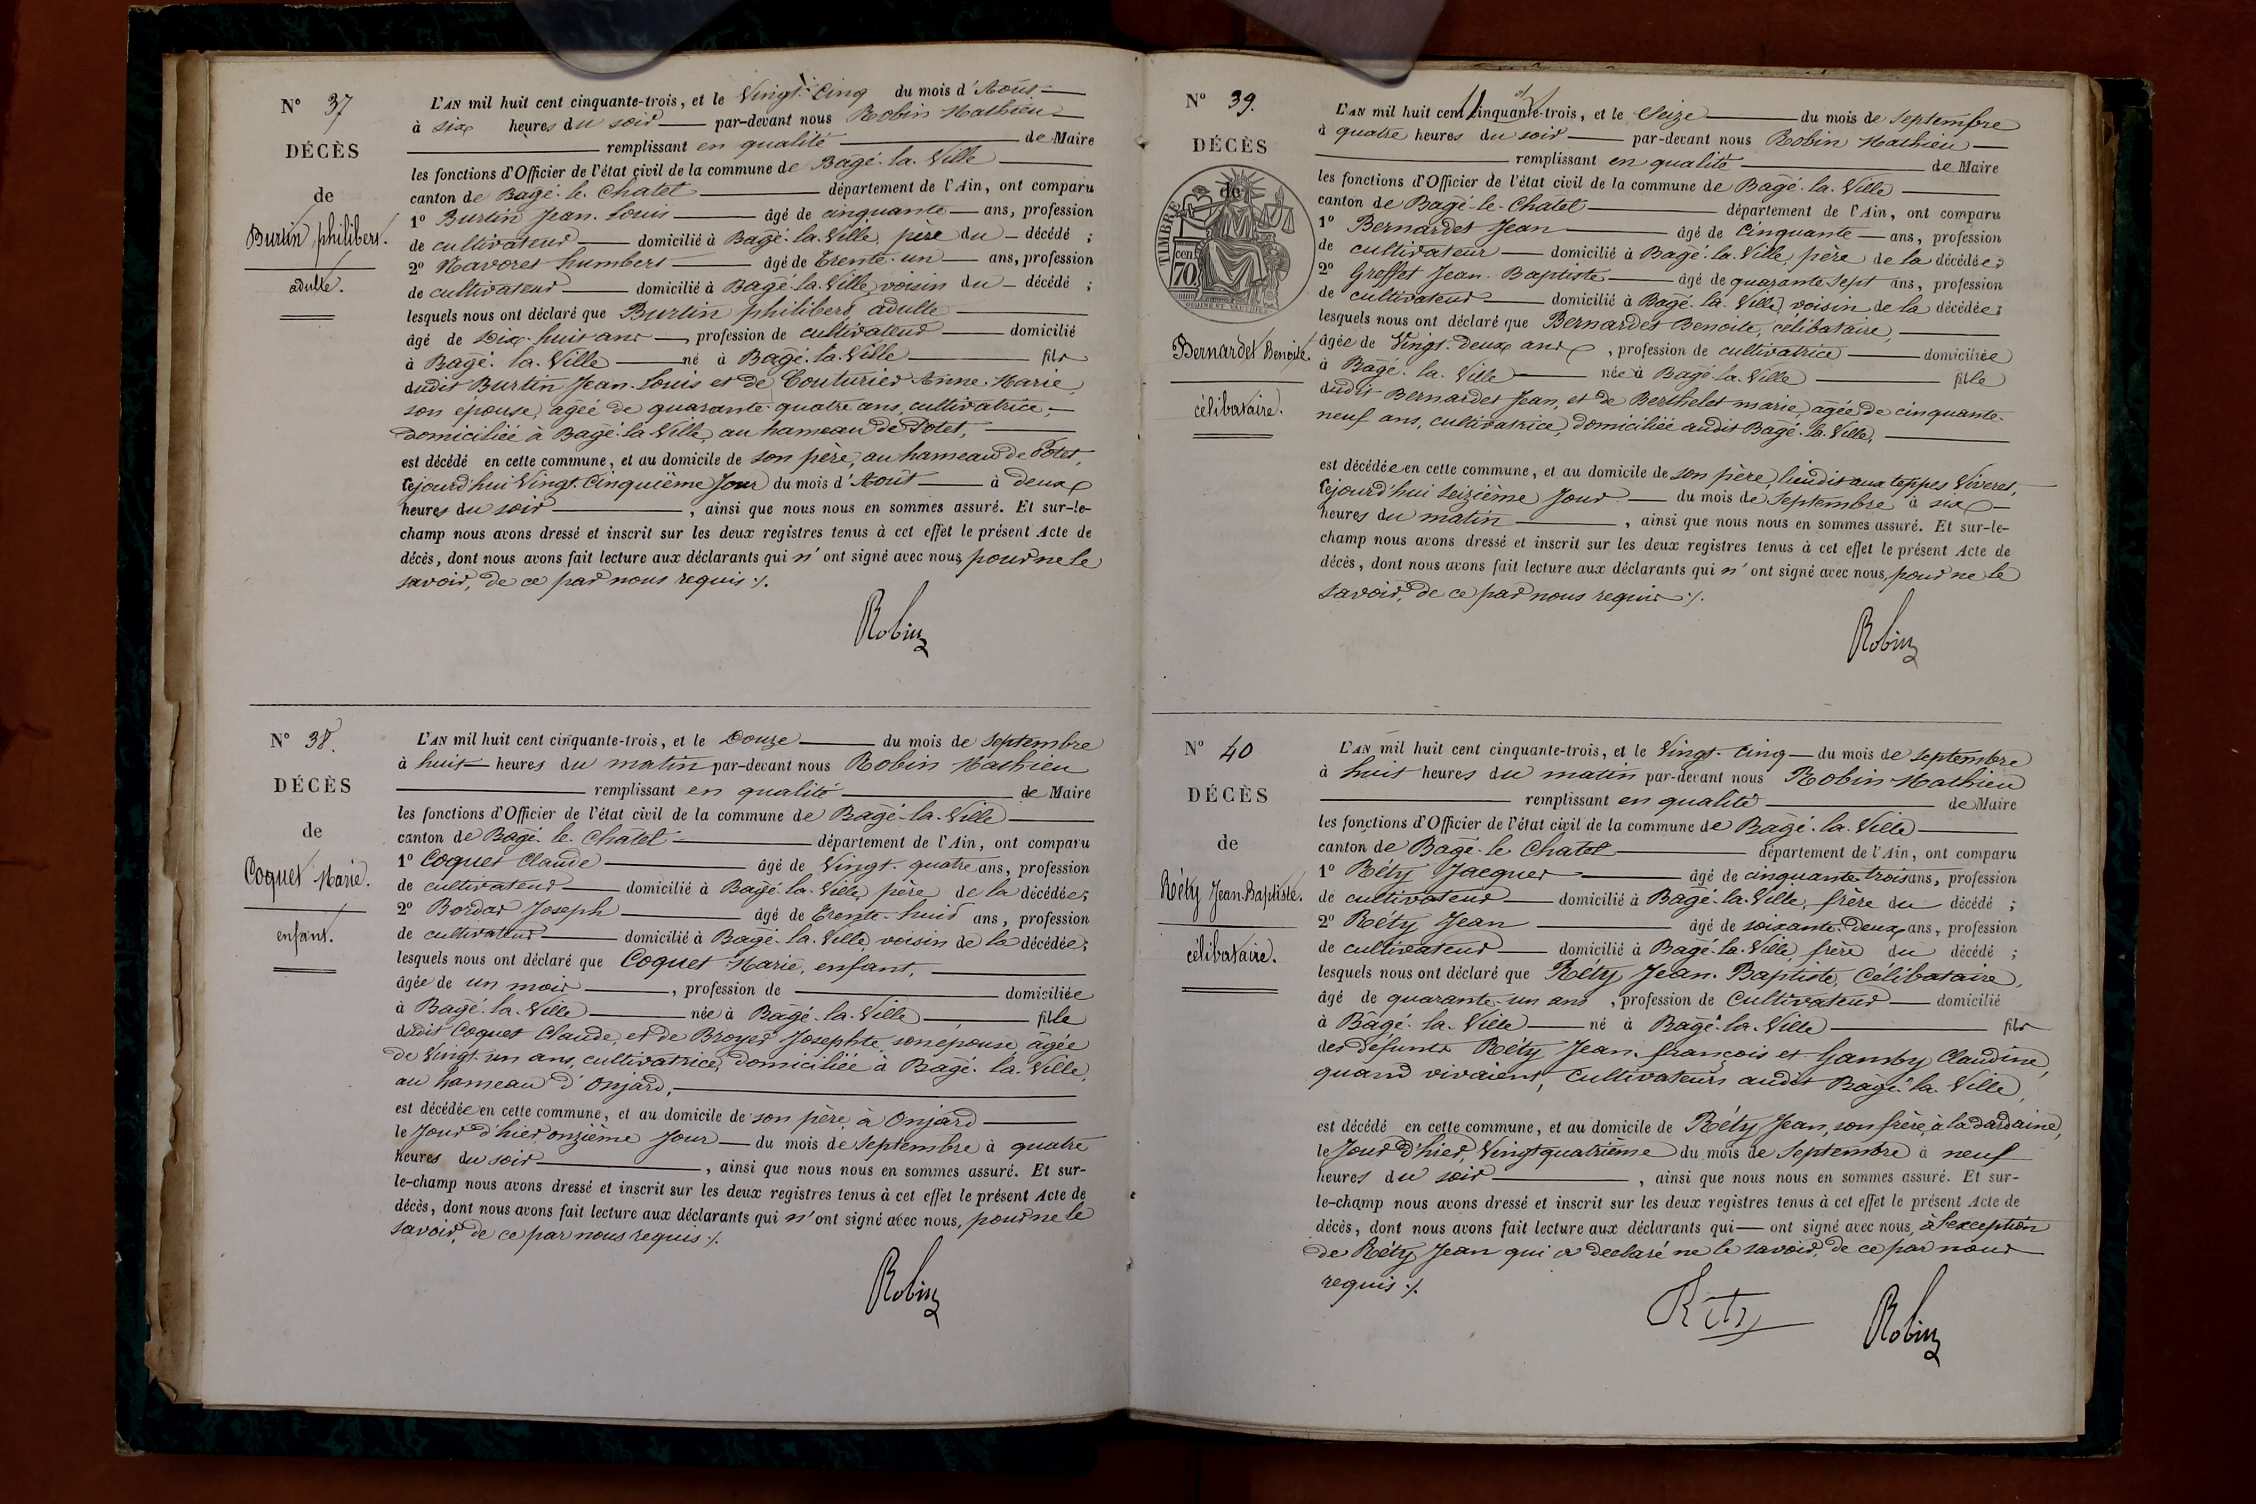 N° 37
DÉCÈS
de
Burtin philibert.
adulte.
L'AN mil huit cent cinquante-trois, et le Vingt-Cinq du mois d'Août
à six heures du soir par-devant nous Robin Mathieu
remplissant en qualité de Maire
les fonctions d'Officier de l'état civil de la commune de Bagé-la-Ville
canton de Bagé-le-Chatel département de l'Ain, ont comparu
1° Burtin Jean-Louis âgé de cinquante ans, profession
de cultivateur domicilié à Bagé-la-Ville, père du décédé ;
2° Navoret humbert âgé de trente-un ans, profession
de cultivateur domicilié à Bagé-la-Ville, voisin du décédé ;
lesquels nous ont déclaré que Burtin philibert, adulte
âgé de Dix-huit ans, profession de cultivateur domicilié
à Bagé-la-Ville né à Bagé-la-Ville fils
dudit Burtin Jean-Louis et de Couturier Anne-Marie,
son épouse, âgée de quarante-quatre ans, cultivatrice,
domiciliée à Bagé-la-Ville, au hameau de Potet,
est décédé en cette commune, et au domicile de son père, au hameau de Potet,
cejourd'hui Vingt-Cinquième Jour du mois d'Août à deux
heures du soir, ainsi que nous nous en sommes assuré. Et sur-le-
champ nous avons dressé et inscrit sur les deux registres tenus à cet effet le présent Acte de
décès, dont nous avons fait lecture aux déclarants qui n'ont signé avec nous, pour ne le
savoir, de ce par nous requis ./.
Robin
N° 38.
DÉCÈS
de
Coquet Marie.
enfant.
L'AN mil huit cent cinquante-trois, et le Douze du mois de Septembre
à huit heures du matin par-devant nous Robin Mathieu
remplissant en qualité de Maire
les fonctions d'Officier de l'état civil de la commune de Bagé-la-Ville
canton de Bagé-le-Chatel département de l'Ain, ont comparu
1° Coquet Claude âgé de Vingt-quatre ans, profession
de cultivateur domicilié à Bagé-la-Ville, père de la décédée;
2° Bordat Joseph âgé de trente-huit ans, profession
de cultivateur domicilié à Bagé-la-Ville, voisin de la décédée;
lesquels nous ont déclaré que Coquet Marie, enfant,
âgée de un mois, profession de domiciliée
à Bagé-la-Ville née à Bagé-la-Ville fille
dudit Coquet Claude, et de Broyer Josephte, son épouse, âgée
de Vingt-un ans, cultivatrice, domiciliée à Bagé-la-Ville,
au hameau d'Onjard,
est décédée en cette commune, et au domicile de son père, à Onjard
le Jour d'hier onzième Jour du mois de Septembre à quatre
heures du soir, ainsi que nous nous en sommes assuré. Et sur-
le-champ nous avons dressé et inscrit sur les deux registres tenus à cet effet le présent Acte de
décès, dont nous avons fait lecture aux déclarants qui n'ont signé avec nous, pour ne le
savoir, de ce par nous requis ./.
Robin
N° 39.
DÉCÈS
de
TIMBRE
70 cent
Bernardet Benoite.
célibataire.
L'AN mil huit cent cinquante-trois, et le Seize du mois de Septembre
à quatre heures du soir par-devant nous Robin Mathieu
remplissant en qualité de Maire
les fonctions d'Officier de l'état civil de la commune de Bagé-la-Ville
canton de Bagé-le-Chatel département de l'Ain, ont comparu
1° Bernardet Jean âgé de Cinquante ans, profession
de cultivateur domicilié à Bagé-la-Ville, père de la décédée;
2° Greffet Jean-Baptiste âgé de quarante sept ans, profession
de cultivateur domicilié à Bagé-la-Ville, voisin de la décédée;
lesquels nous ont déclaré que Bernardet Benoite, célibataire,
âgée de Vingt-deux ans, profession de cultivatrice domiciliée
à Bagé-la-Ville née à Bagé-la-Ville fille
dudit Bernardet Jean, et de Berthelet marie, âgée de cinquante-
neuf ans, cultivatrice, domiciliée audit Bagé-la-Ville,
est décédée en cette commune, et au domicile de son père, lieudit aux teppes Viveret,
cejourd'hui seizième Jour du mois de Septembre à six
heures du matin, ainsi que nous nous en sommes assuré. Et sur-le-
champ nous avons dressé et inscrit sur les deux registres tenus à cet effet le présent Acte de
décès, dont nous avons fait lecture aux déclarants qui n'ont signé avec nous, pour ne le
savoir, de ce par nous requis ./.
Robin
N° 40
DÉCÈS
de
Réty Jean-Baptiste.
célibataire.
L'AN mil huit cent cinquante-trois, et le Vingt-Cinq du mois de Septembre
à huit heures du matin par-devant nous Robin Mathieu
remplissant en qualité de Maire
les fonctions d'Officier de l'état civil de la commune de Bagé-la-Ville
canton de Bagé-le Chatel département de l'Ain, ont comparu
1° Réty Jacques âgé de cinquante-trois ans, profession
de cultivateur domicilié à Bagé-la-Ville, frère du décédé ;
2° Réty Jean âgé de soixante-deux ans, profession
de cultivateur domicilié à Bagé-la-Ville, frère du décédé ;
lesquels nous ont déclaré que Réty Jean-Baptiste, Célibataire,
âgé de quarante-un ans, profession de Cultivateur domicilié
à Bagé-la-Ville né à Bagé-la-Ville fils
des défunts Réty Jean-françois et Gamby Claudine,
quand vivaient, Cultivateurs audit Bagé-la-Ville,
est décédé en cette commune, et au domicile de Réty Jean, son frère, à la dardaine,
le Jour d'hier, Vingt quatrième du mois de Septembre à neuf
heures du soir, ainsi que nous nous en sommes assuré. Et sur-
le-champ nous avons dressé et inscrit sur les deux registres tenus à cet effet le présent Acte de
décès, dont nous avons fait lecture aux déclarants qui ont signé avec nous, à l'exception
de Réty Jean qui a declaré ne le savoir, de ce par nous
requis ./.
Réty
Robin